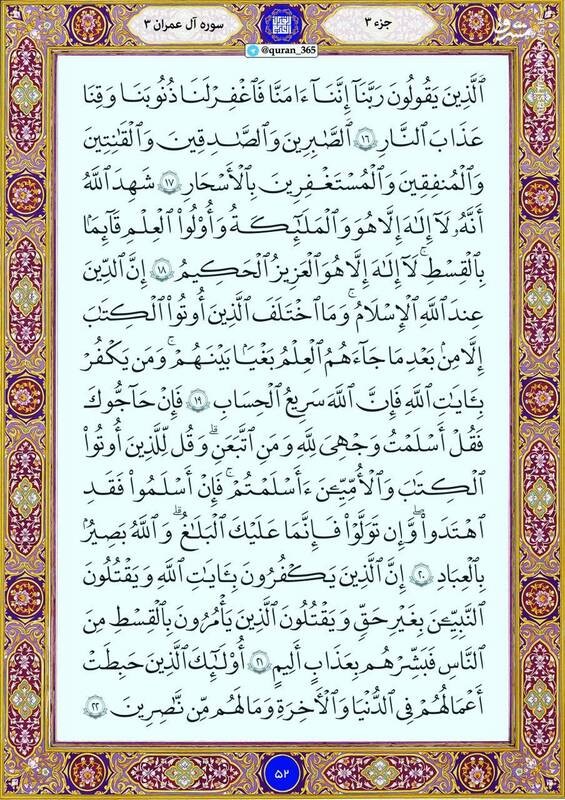 جزء ۳
سوره آل عمران ۳
@quran_365
ٱلَّذِينَ يَقُولُونَ رَبَّنَآ إِنَّنَآ ءَامَنَّا فَٱغْفِرْ لَنَا ذُنُوبَنَا وَقِنَا
عَذَابَ ٱلنَّارِ ۱۶ ٱلصَّٰبِرِينَ وَٱلصَّٰدِقِينَ وَٱلْقَٰنِتِينَ
وَٱلْمُنفِقِينَ وَٱلْمُسْتَغْفِرِينَ بِٱلْأَسْحَارِ ۱۷ شَهِدَ ٱللَّهُ
أَنَّهُۥ لَآ إِلَٰهَ إِلَّا هُوَ وَٱلْمَلَٰٓئِكَةُ وَأُو۟لُوا۟ ٱلْعِلْمِ قَآئِمًۢا
بِٱلْقِسْطِ ۚ لَآ إِلَٰهَ إِلَّا هُوَ ٱلْعَزِيزُ ٱلْحَكِيمُ ۱۸ إِنَّ ٱلدِّينَ
عِندَ ٱللَّهِ ٱلْإِسْلَٰمُ ۗ وَمَا ٱخْتَلَفَ ٱلَّذِينَ أُوتُوا۟ ٱلْكِتَٰبَ
إِلَّا مِنۢ بَعْدِ مَا جَآءَهُمُ ٱلْعِلْمُ بَغْيًۢا بَيْنَهُمْ ۗ وَمَن يَكْفُرْ
بِـَٔايَٰتِ ٱللَّهِ فَإِنَّ ٱللَّهَ سَرِيعُ ٱلْحِسَابِ ۱۹ فَإِنْ حَآجُّوكَ
فَقُلْ أَسْلَمْتُ وَجْهِىَ لِلَّهِ وَمَنِ ٱتَّبَعَنِ ۗ وَقُل لِّلَّذِينَ أُوتُوا۟
ٱلْكِتَٰبَ وَٱلْأُمِّيِّـۧنَ ءَأَسْلَمْتُمْ ۚ فَإِنْ أَسْلَمُوا۟ فَقَدِ
ٱهْتَدَوا۟ ۖ وَّإِن تَوَلَّوْا۟ فَإِنَّمَا عَلَيْكَ ٱلْبَلَٰغُ ۗ وَٱللَّهُ بَصِيرٌۢ
بِٱلْعِبَادِ ۲۰ إِنَّ ٱلَّذِينَ يَكْفُرُونَ بِـَٔايَٰتِ ٱللَّهِ وَيَقْتُلُونَ
ٱلنَّبِيِّـۧنَ بِغَيْرِ حَقٍّ وَيَقْتُلُونَ ٱلَّذِينَ يَأْمُرُونَ بِٱلْقِسْطِ مِنَ
ٱلنَّاسِ فَبَشِّرْهُم بِعَذَابٍ أَلِيمٍ ۲۱ أُو۟لَٰٓئِكَ ٱلَّذِينَ حَبِطَتْ
أَعْمَٰلُهُمْ فِى ٱلدُّنْيَا وَٱلْأَخِرَةِ وَمَا لَهُم مِّن نَّٰصِرِينَ ۲۲
۵۲